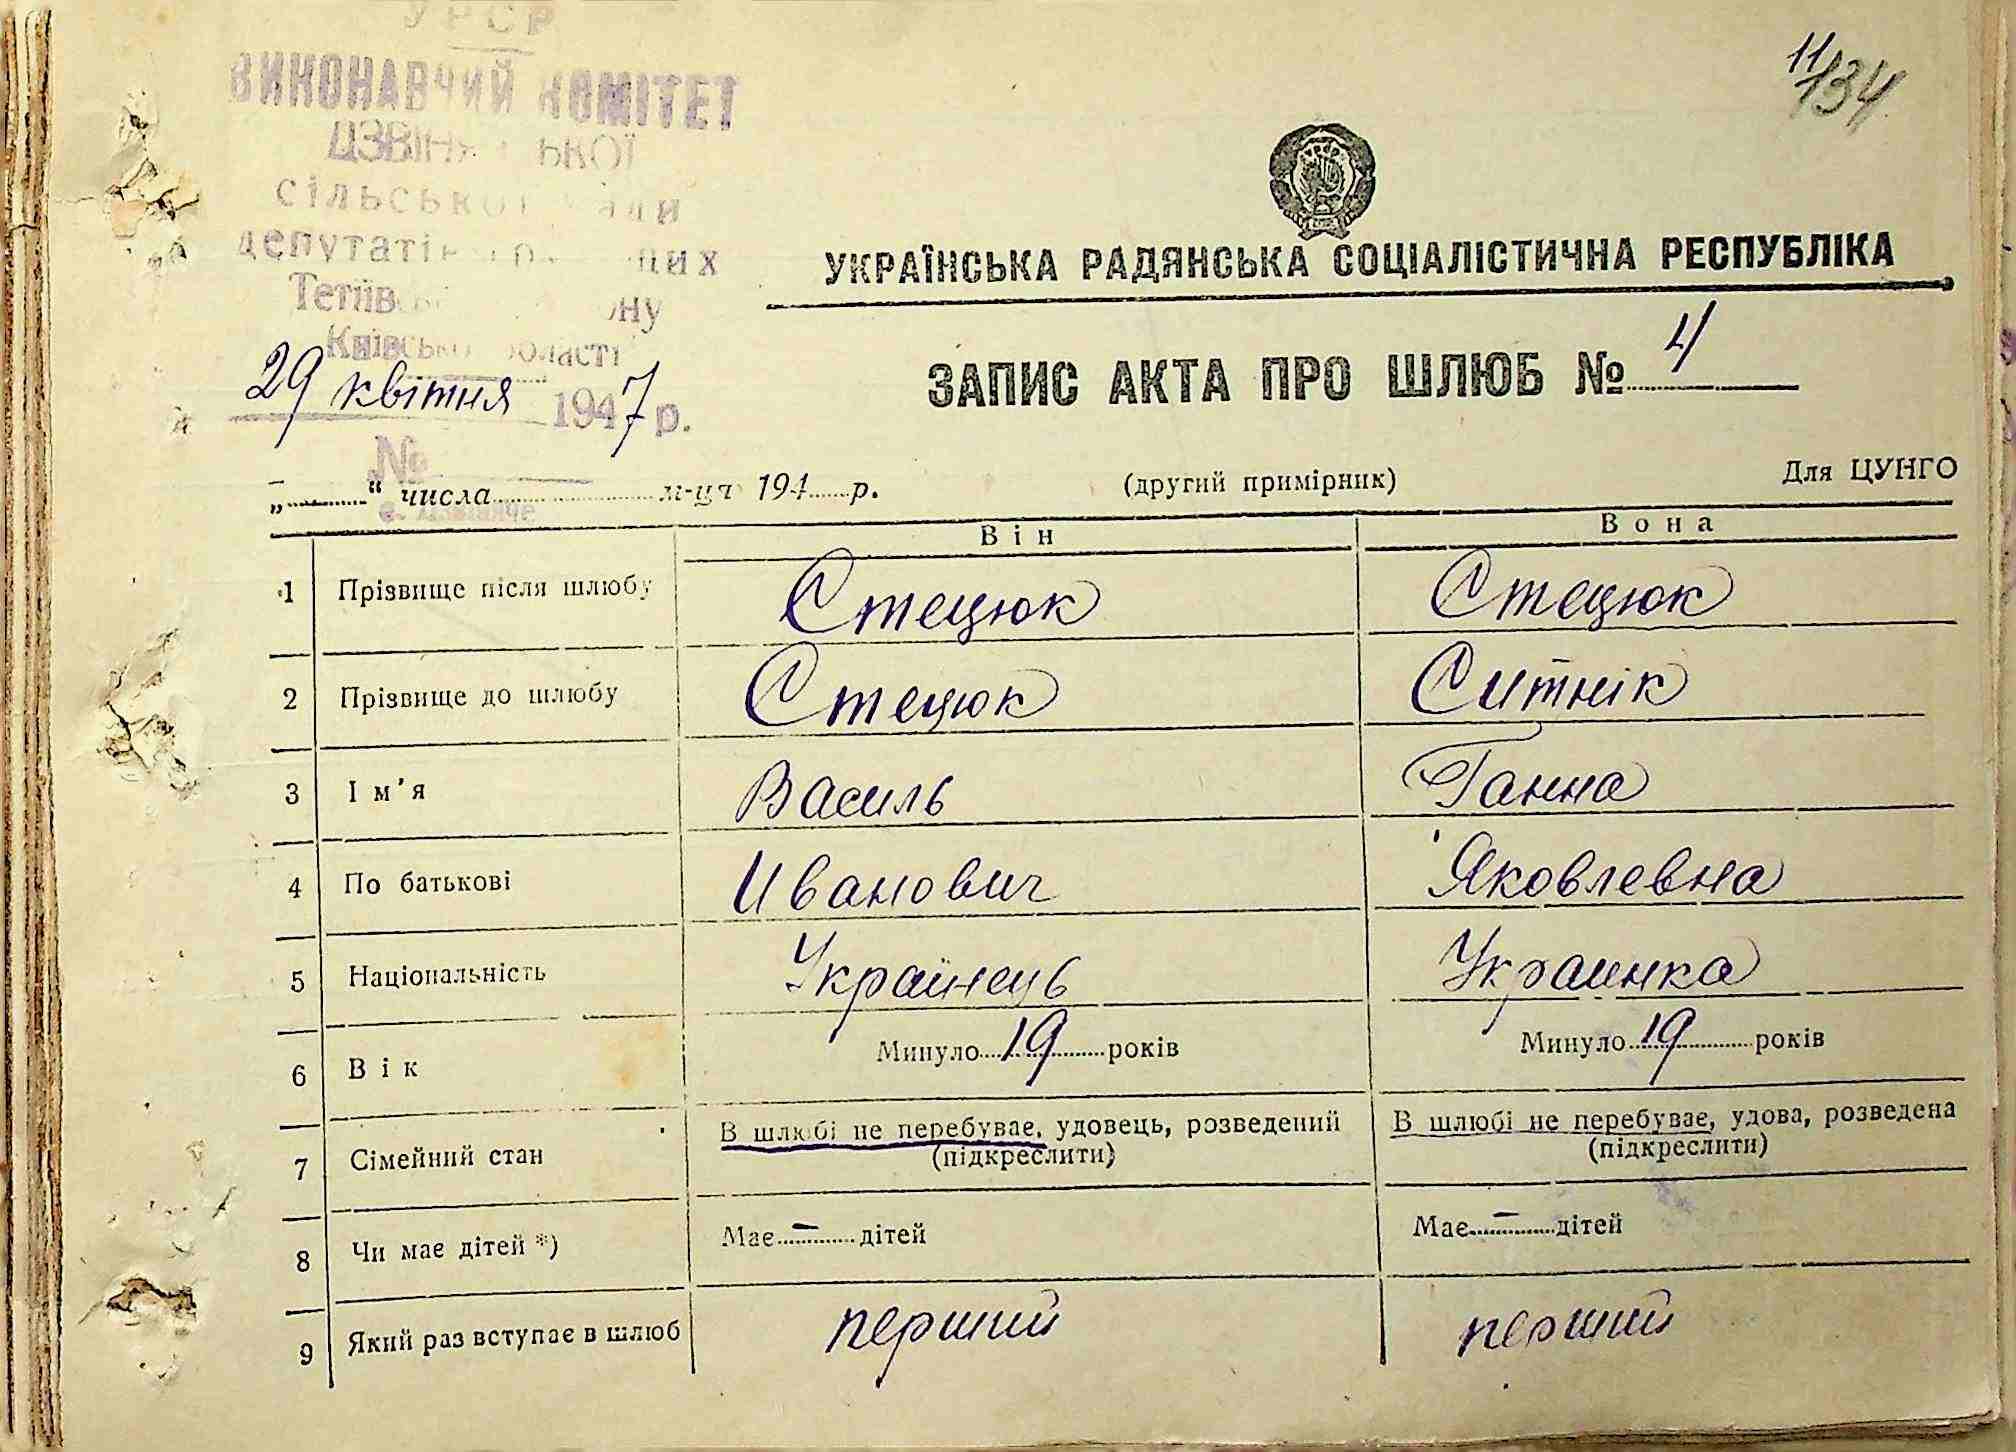 УРСР
ВИКОНАВЧИЙ КОМІТЕТ
сільської ради
депутатів
Київської області
29 квітня 1947 р.
№
11/134
УРСР
УКРАЇНСЬКА РАДЯНСЬКА СОЦІАЛІСТИЧНА РЕСПУБЛІКА
ЗАПИС АКТА ПРО ШЛЮБ № 4
„ “ числа м-ця 194 р. (другий примірник) Для ЦУНГО
Він Вона
1 Прізвище після шлюбу Стецюк Стецюк
2 Прізвище до шлюбу Стецюк Ситнік
3 Ім'я Василь Ганна
4 По батькові Иванович Яковлевна
5 Національність Українець Украинка
6 Вік Минуло 19 років Минуло 19 років
7 Сімейний стан В шлюбі не перебуває, удовець, розведений (підкреслити) В шлюбі не перебуває, удова, розведена (підкреслити)
8 Чи має дітей *) Має – дітей Має – дітей
9 Який раз вступає в шлюб перший перший